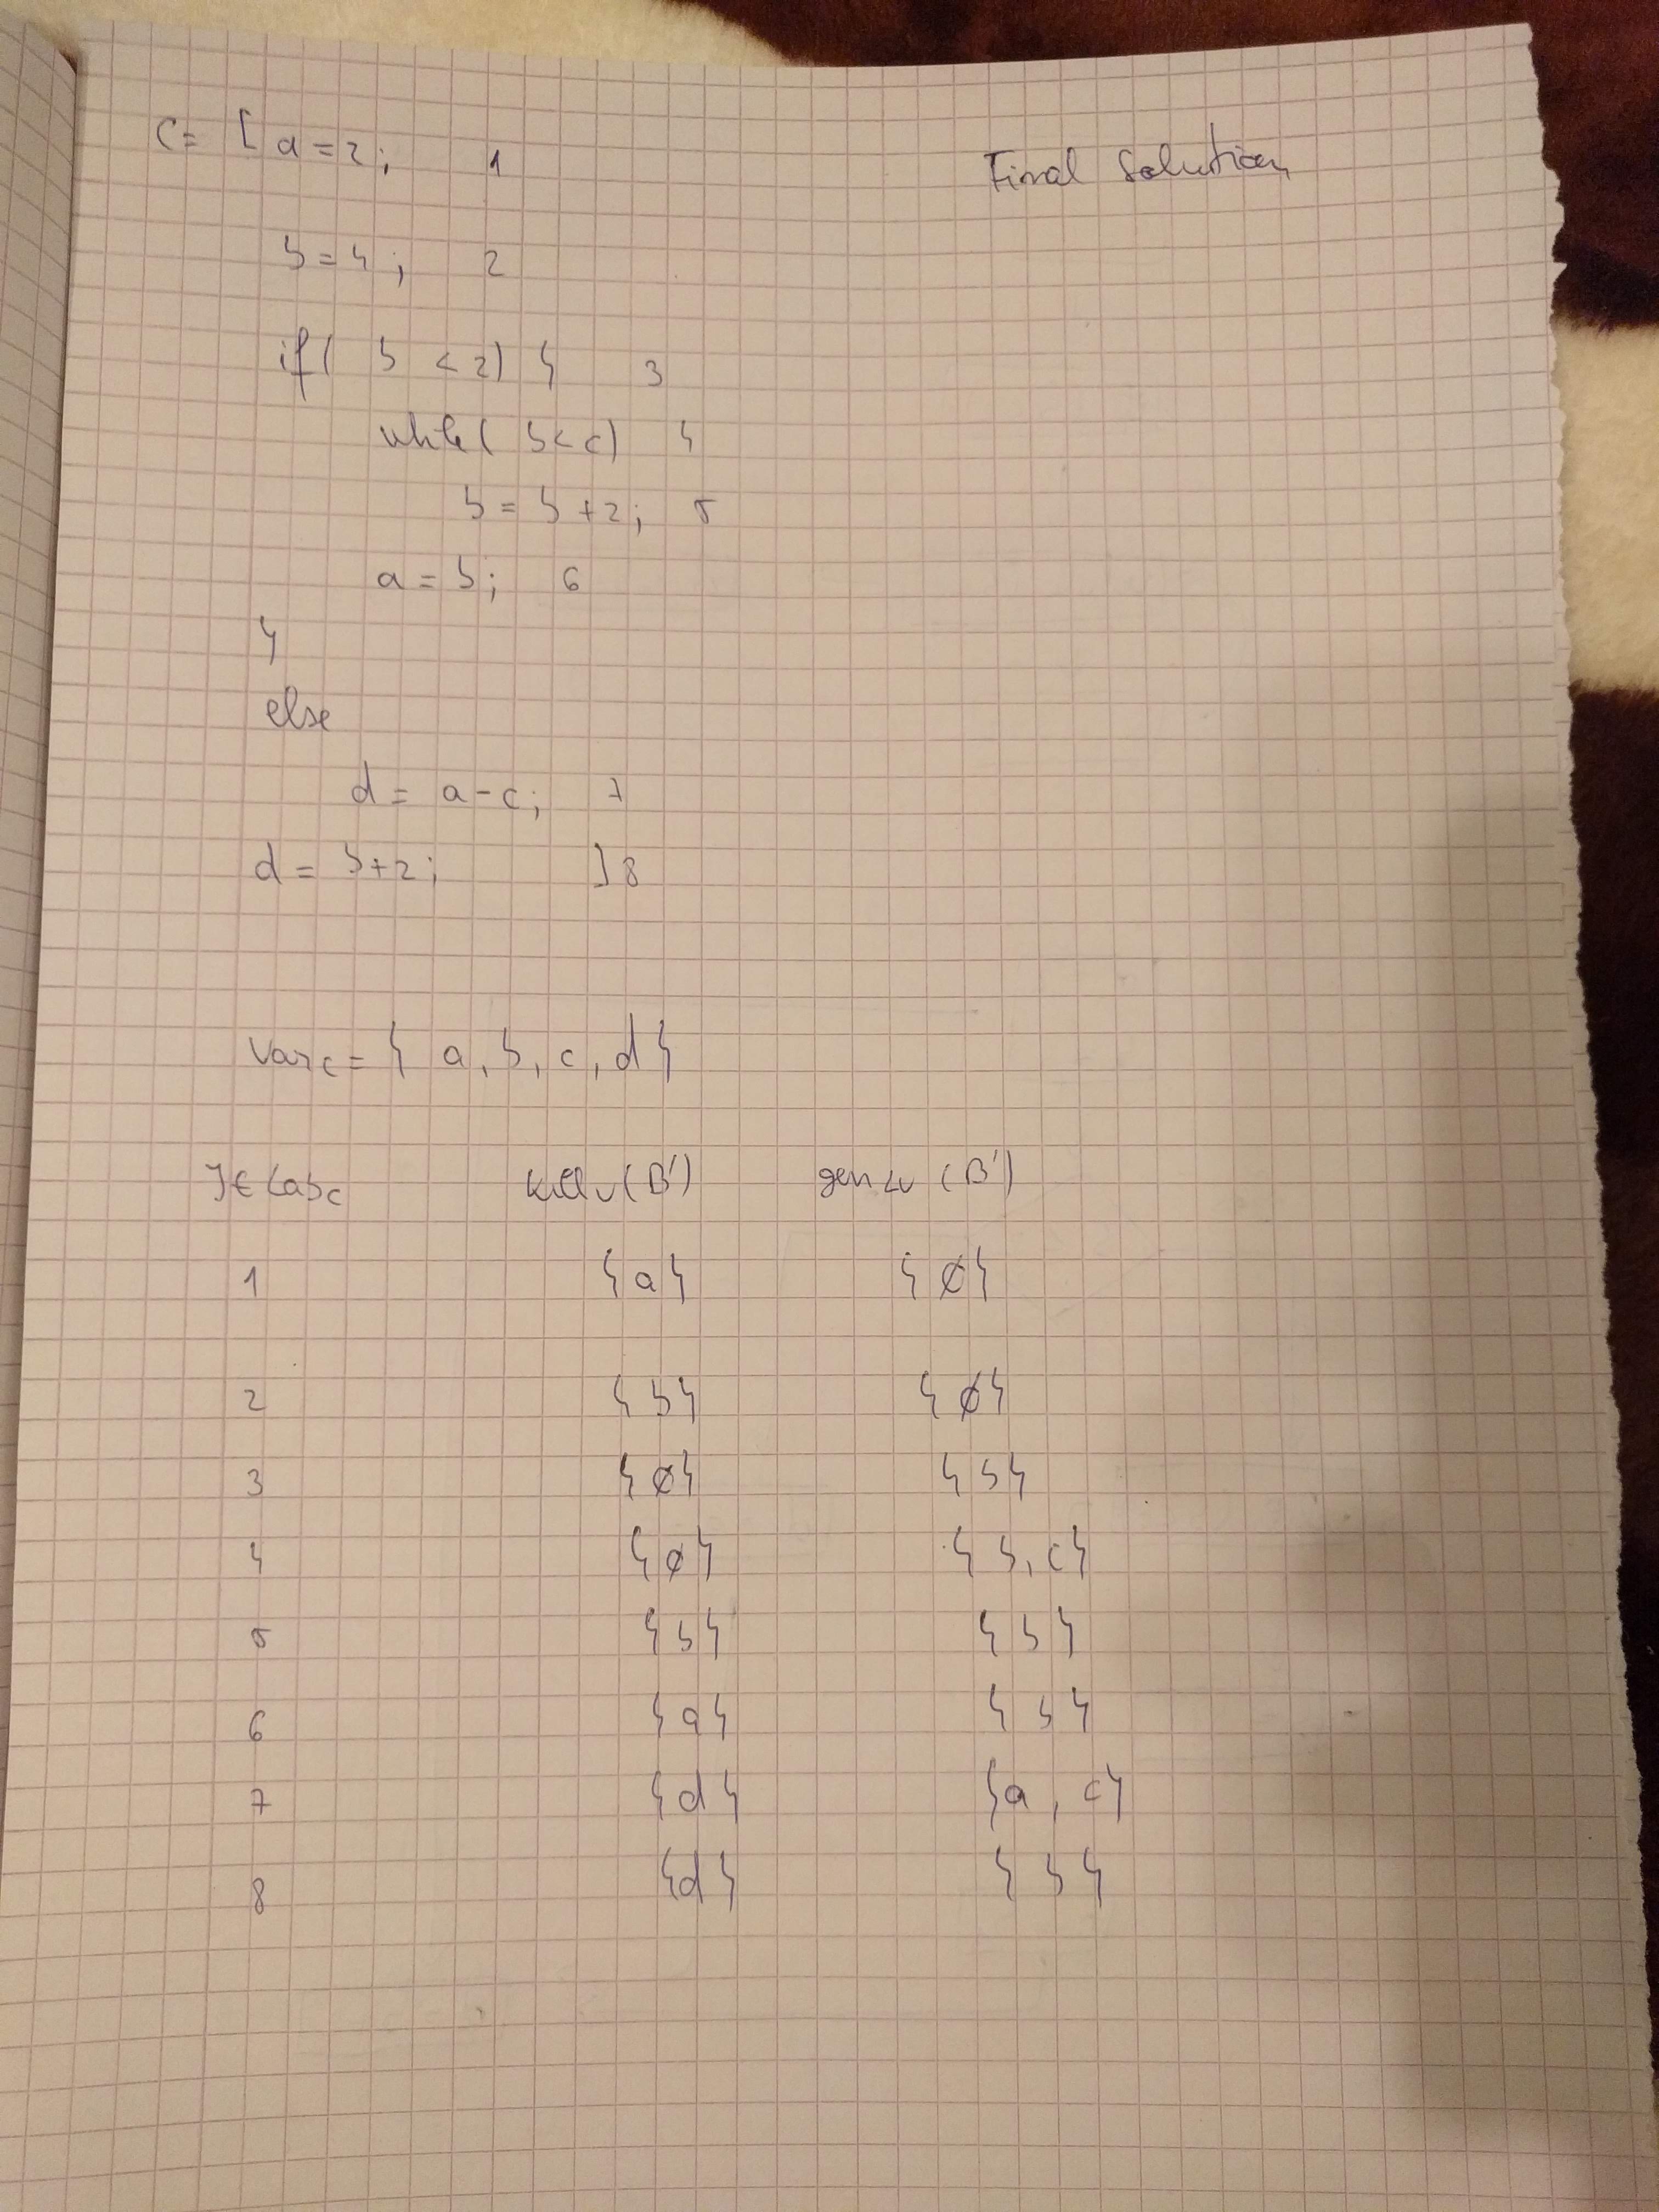 C = [ a = 2; 1
Final Solution
b = 4; 2
if( b < 2) { 3
while( b < c) 4
b = b + 2; 5
a = b; 6
}
else
d = a - c; 7
d = b + 2; ] 8
Var_c = { a, b, c, d }
l ∈ Lab_c kill_LV (B^l) gen_LV (B^l)
1 {a} {∅}
2 {b} {∅}
3 {∅} {b}
4 {∅} {b, c}
5 {b} {b}
6 {a} {b}
7 {d} {a, c}
8 {d} {b}